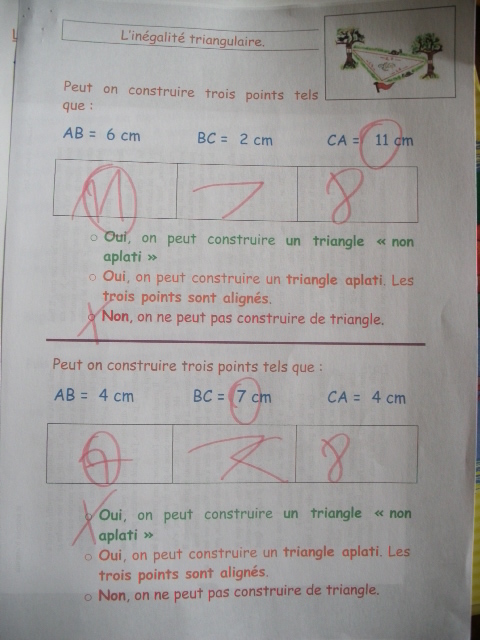 L'inégalité triangulaire.
Peut on construire trois points tels
que :
AB = 6 cm BC = 2 cm CA = 11 cm
11 > 8
○ Oui, on peut construire un triangle « non
aplati »
○ Oui, on peut construire un triangle aplati. Les
trois points sont alignés.
○ Non, on ne peut pas construire de triangle.
Peut on construire trois points tels que :
AB = 4 cm BC = 7 cm CA = 4 cm
7 < 8
○ Oui, on peut construire un triangle « non
aplati »
○ Oui, on peut construire un triangle aplati. Les
trois points sont alignés.
○ Non, on ne peut pas construire de triangle.